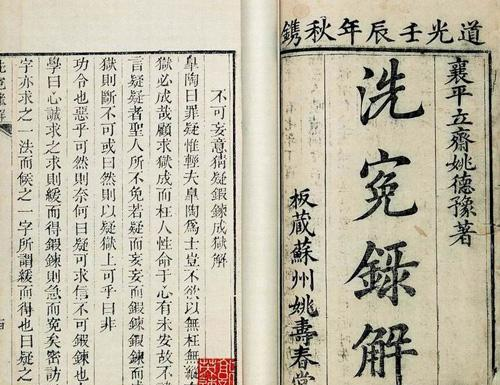 道光壬辰年秋鐫
襄平立齋姚德豫著
洗冤錄解
板藏蘇州姚壽春堂
不可妄意猜疑鍛鍊成獄解
皐陶曰罪疑惟輕夫皐陶爲士豈不欲以無枉無縱
獄必成哉顧求獄成而枉人性命于心有未安故不
言疑疑者聖人所不免若疑而妄妄而鍛鍊鍛鍊而
獄則斷不可或曰然則以疑獄上可乎曰非
功令也惡乎可然則奈何曰疑可求信不可鍛鍊也
學曰心誠求之求則緩而得鍛鍊則急而冤矣密訪
字亦求之一法而候之一字所謂緩而得也曰疑之